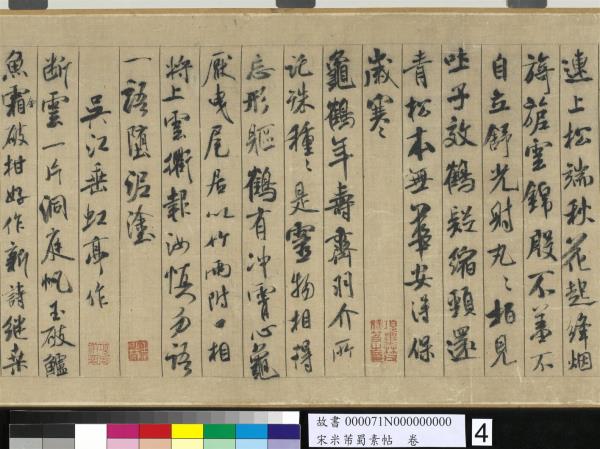 連上松端秋花起絳烟
旖旎雲錦殷不羞不
自立舒光射丸〻栢見
吐子效鶴疑縮頸還
青松本無華安得保
歲寒
龜鶴年壽齊羽介所
託殊種〻是靈物相得
忘形軀鶴有沖霄心龜
厭曳尾居以竹兩附口相
將上雲衢報汝慎勿語
一語墮泥塗
吳江垂虹亭作
斷雲一片洞庭帆玉破鱸
魚霜破柑好作新詩継桑
故書 000071N000000000
宋米芾蜀素帖 卷
4